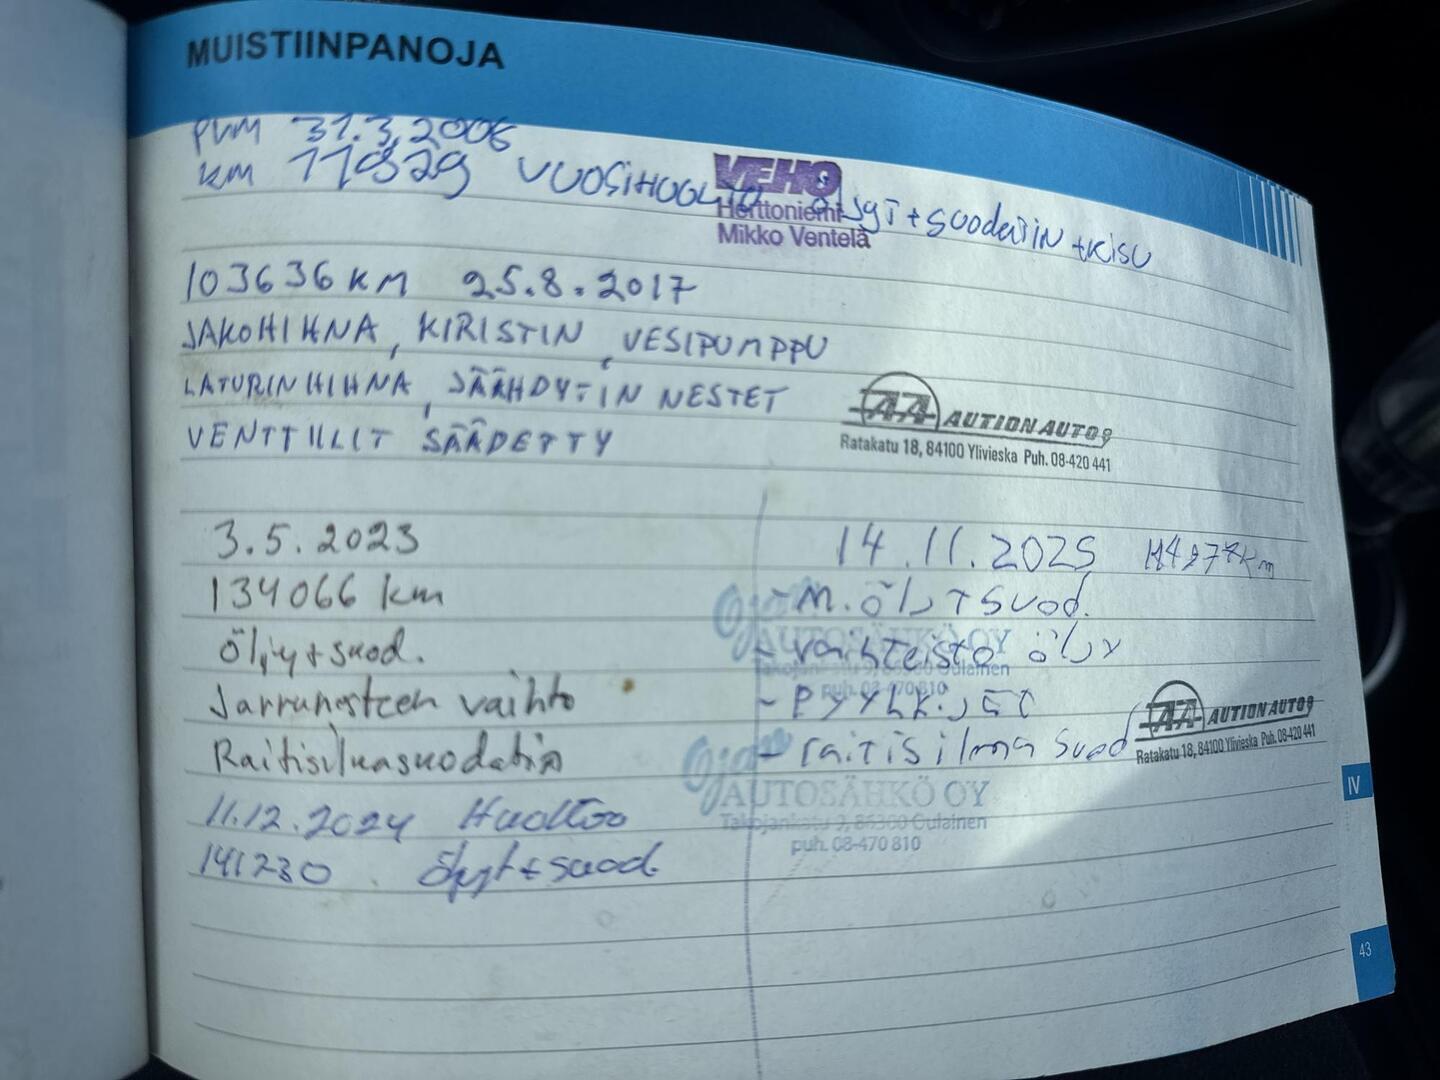 MUISTIINPANOJA
PVM 31.3.2006
KM VUOSIHUOLTO ÖLJYT + SUODATIN + KISU
VEHO
Herttoniemi
Mikko Ventelä
103636 KM 25.8.2017
JAKOHIHNA, KIRISTIN, VESIPUMPPU
LATURINHIHNA, JÄÄHDYTIN NESTET
VENTTIILIT SÄÄDETTY
AA AUTIONAUTO
Ratakatu 18, 84100 Ylivieska Puh. 08-420 441
3.5.2023
134066 km
Öljy+suod.
Jarrunesteen vaihto
Raitisilmasuodatin
11.12.2024 Huoltoo
141230 Öljyt+suod.
14.11.2025
- M. ÖLJ + SUOD.
- vaihteisto ölJy
- PYYHK.JET
- raitisilma suod
Ojan
AUTOSÄHKÖ OY
Takojankatu 9, 86300 Oulainen
puh. 08-470 810
AA AUTIONAUTO
Ratakatu 18, 84100 Ylivieska Puh. 08-420 441
Ojan
AUTOSÄHKÖ OY
Takojankatu 9, 86300 Oulainen
puh. 08-470 810
IV
43